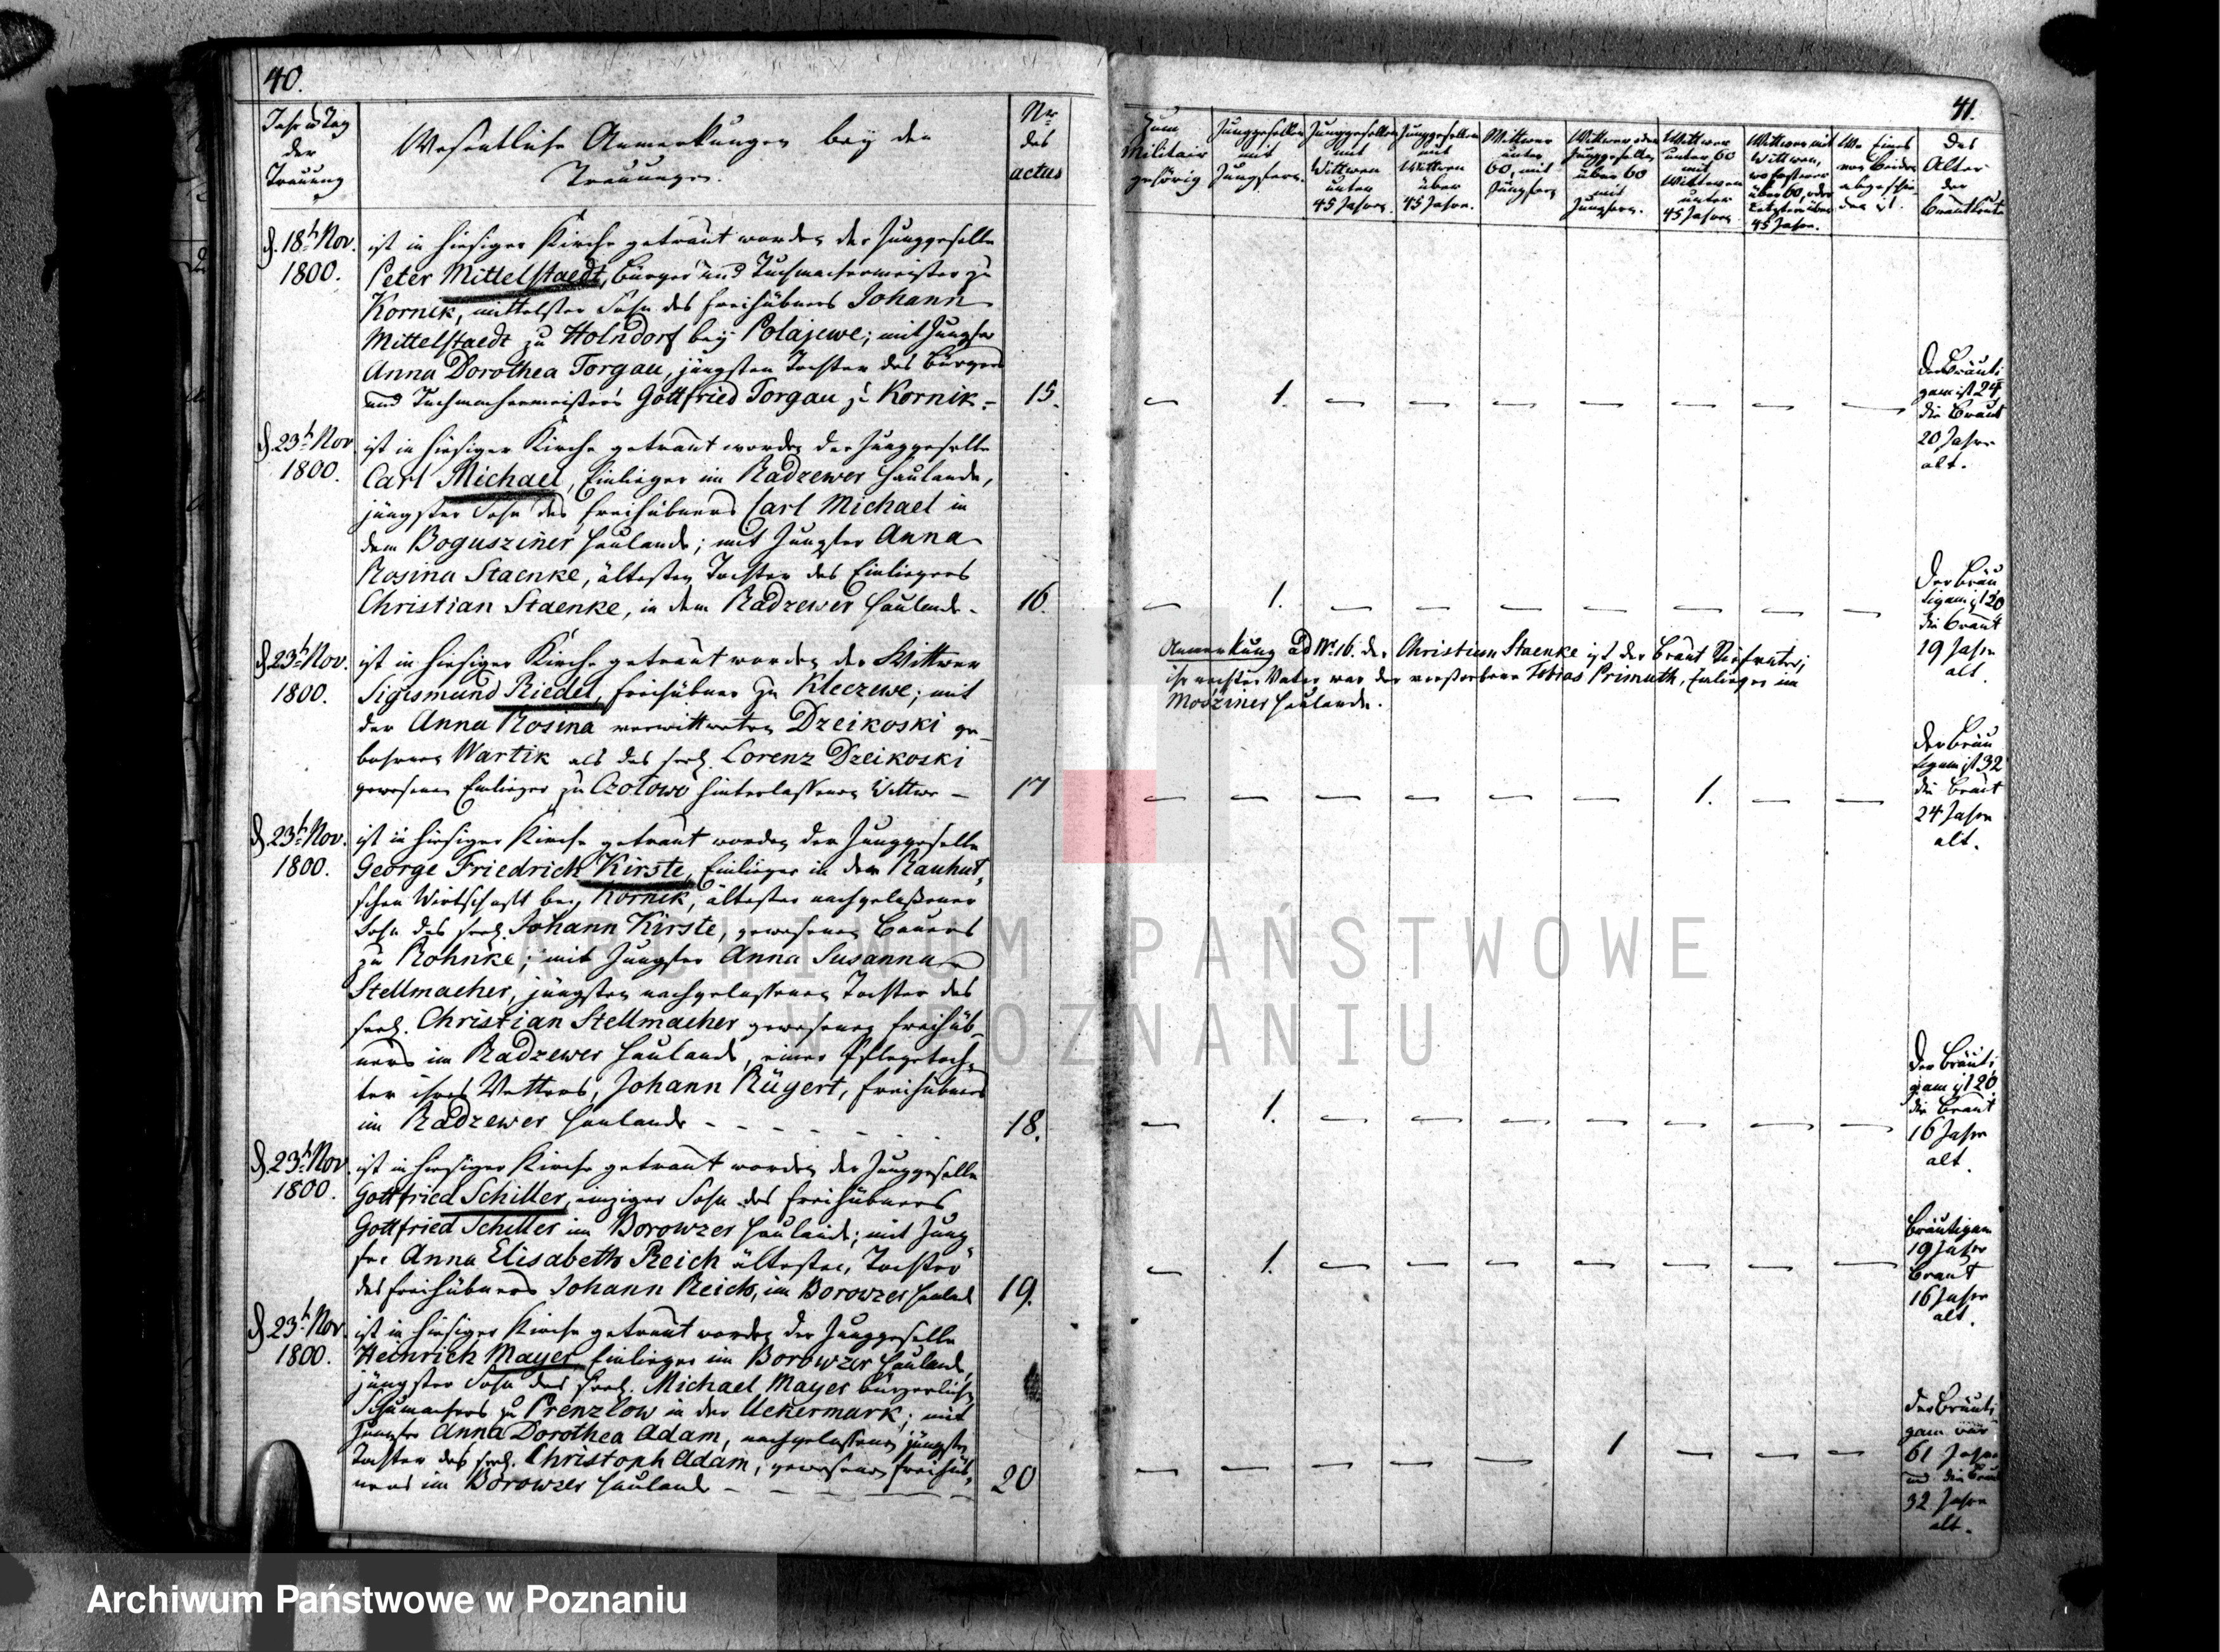 40.
Jahr u Tag
der
Trauung
Wesentliche Anmerkungen bey den
Trauungen.
Nr
des
actus
d. 18t Nov.
1800.
ist in hiesiger Kirche getraut worden der Junggeselle
Peter Mittelstaedt, Bürger und Tuchmachermeister zu
Kornik, mittelster Sohn des Freihübners Johann
Mittelstaedt zu Holndorf bey Polajewe; mit Jungfer
Anna Dorothea Torgau, jüngsten Tochter des Bürgers
und Tuchmachermeisters Gottfried Torgau zu Kornik.
15.
d. 23t Nov
1800.
ist in hiesiger Kirche getraut worden der Junggeselle
Carl Michael, Einlieger im Radzewer Haulande,
jüngster Sohn des Freihübners Carl Michael in
dem Bogusziner Haulande; mit Jungfer Anna
Rosina Staenke, ältesten Tochter des Einliegers
Christian Staenke, in dem Radzewer Haulande.
16.
d. 23t Nov.
1800.
ist in hiesiger Kirche getraut worden der Wittwer
Sigismund Riedel, Freihübner zu Kleczewe; mit
der Anna Rosina verwittweten Dzeikoski ge-
bohrnen Wartik als des seel. Lorenz Dzeikoski
gewesenen Einlieger zu Czolowo hinterlassenen Wittwe –
17
d. 23t Nov.
1800.
ist in hiesiger Kirche getraut worden der Junggeselle
George Friedrich Kirste, Einlieger in der Rauhut-
schen Wirtschaft bey Kornik, ältester nachgelaßener
Sohn des seel. Johann Kirste, gewesenen Bauers
zu Rohnke; mit Jungfer Anna Susanna
Stellmacher, jüngsten nachgelassenen Tochter des
seel. Christian Stellmacher gewesenen Freihüb-
ners im Radzewer Haulande, einer Pflegetoch-
ter ihres Vetters, Johann Rügert, Freihübners
im Radzewer Haulande - - - - - - -
18.
d. 23t Nov
1800.
ist in hiesiger Kirche getraut worden der Junggeselle
Gottfried Schiller, einziger Sohn des Freihübners
Gottfried Schiller im Borowzer Haulande; mit Jung
fer Anna Elisabeth Reich ältesten, Tochter
des Freihübners Johann Reich, im Borowzer Hauland
19.
d. 23t Nov.
1800.
ist in hiesiger Kirche getraut worden der Junggeselle
Heinrich Mayer Einlieger im Borowzer Hauland,
jüngster Sohn des seel. Michael Mayer bürgerlichen
Schumachers zu Prenzlow in der Uckermark; mit
Jungfer Anna Dorothea Adam, nachgelassenen jüngsten
Tochter des seel. Christoph Adam, gewesenen Freihüb-
ners im Borowzer Haulande - - - -
20
41.
Zum
Militair
gehörig
Junggesellen
mit
Jungfern.
Junggesellen
mit
Wittwen
unter
45 Jahren.
Junggesellen
mit
Wittwen
über
45 Jahre.
Wittwer
unter
60, mit
Jungfern
Wittwer oder
Junggesellen
über 60
mit
Jungfern.
Wittwer
unter 60
mit
Wittwen
unter
45 Jahren
Wittwer mit
Wittwen,
wo ersterer
über 60, oder
Letztere über
45 Jahre.
Wo Eines
von Beiden
abgeschie-
den ist.
Das
Alter
der
Brautleute
— 1. — — — — — — —
Der Bräuti
gam ist 24
die Braut
20 Jahre
alt.
— 1. — — — — — — —
Der Bräu
tigam ist 20
die Braut
19 Jahre
alt.
Anmerkung ad Nr. 16. der Christian Staenke ist der Braut Stiefvater;
ihr rechter Vater war der verstorbene Tobias Primuth, Einlieger im
Mosziner Haulande.
— — — — — — 1. — —
Der Bräu
tigam ist 32
die Braut
24 Jahre
alt.
— 1. — — — — — — —
Der Bräuti
gam ist 20
die Braut
16 Jahre
alt.
— 1. — — — — — — —
Bräutigam
19 Jahre
Braut
16 Jahre
alt.
— — — — — 1 — — —
Der Bräuti
gam war
61 Jahre
und die Braut
32 Jahre
alt.
ARCHIWUM PAŃSTWOWE
W POZNANIU
Archiwum Państwowe w Poznaniu